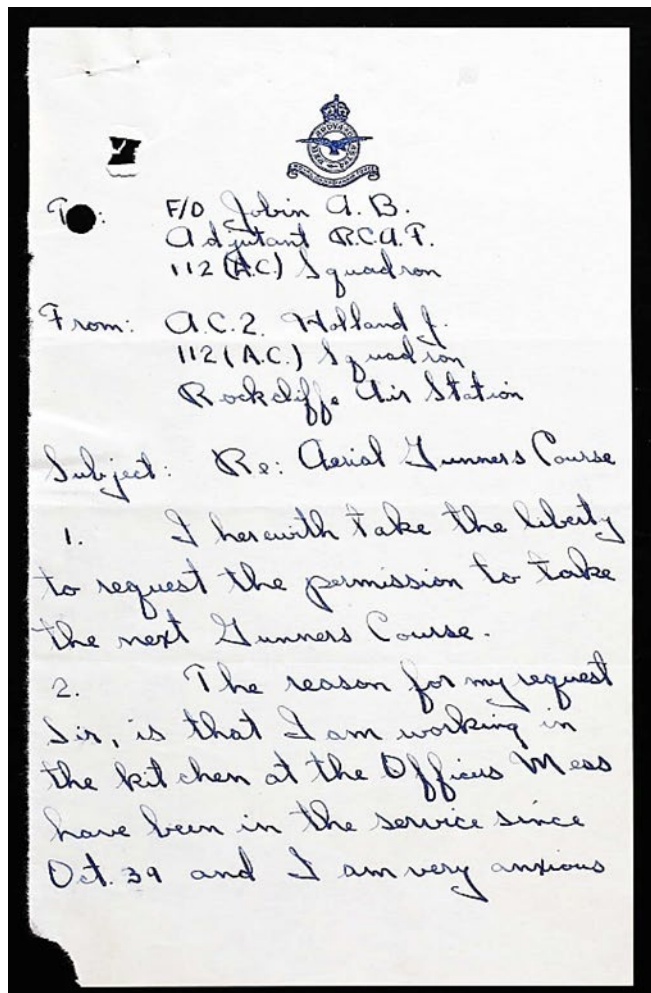 To: F/O Jobin A.B.
Adjutant R.C.A.F.
112 (A.C.) Squadron
From: A.C.2. Holland J.
112 (A.C.) Squadron
Rockcliffe Air Station
Subject: Re: Aerial Gunners Course
1. I herewith take the liberty
to request the permission to take
the next Gunners Course.
2. The reason for my request
Sir, is that I am working in
the kitchen at the Officers Mess
have been in the service since
Oct. 39 and I am very anxious